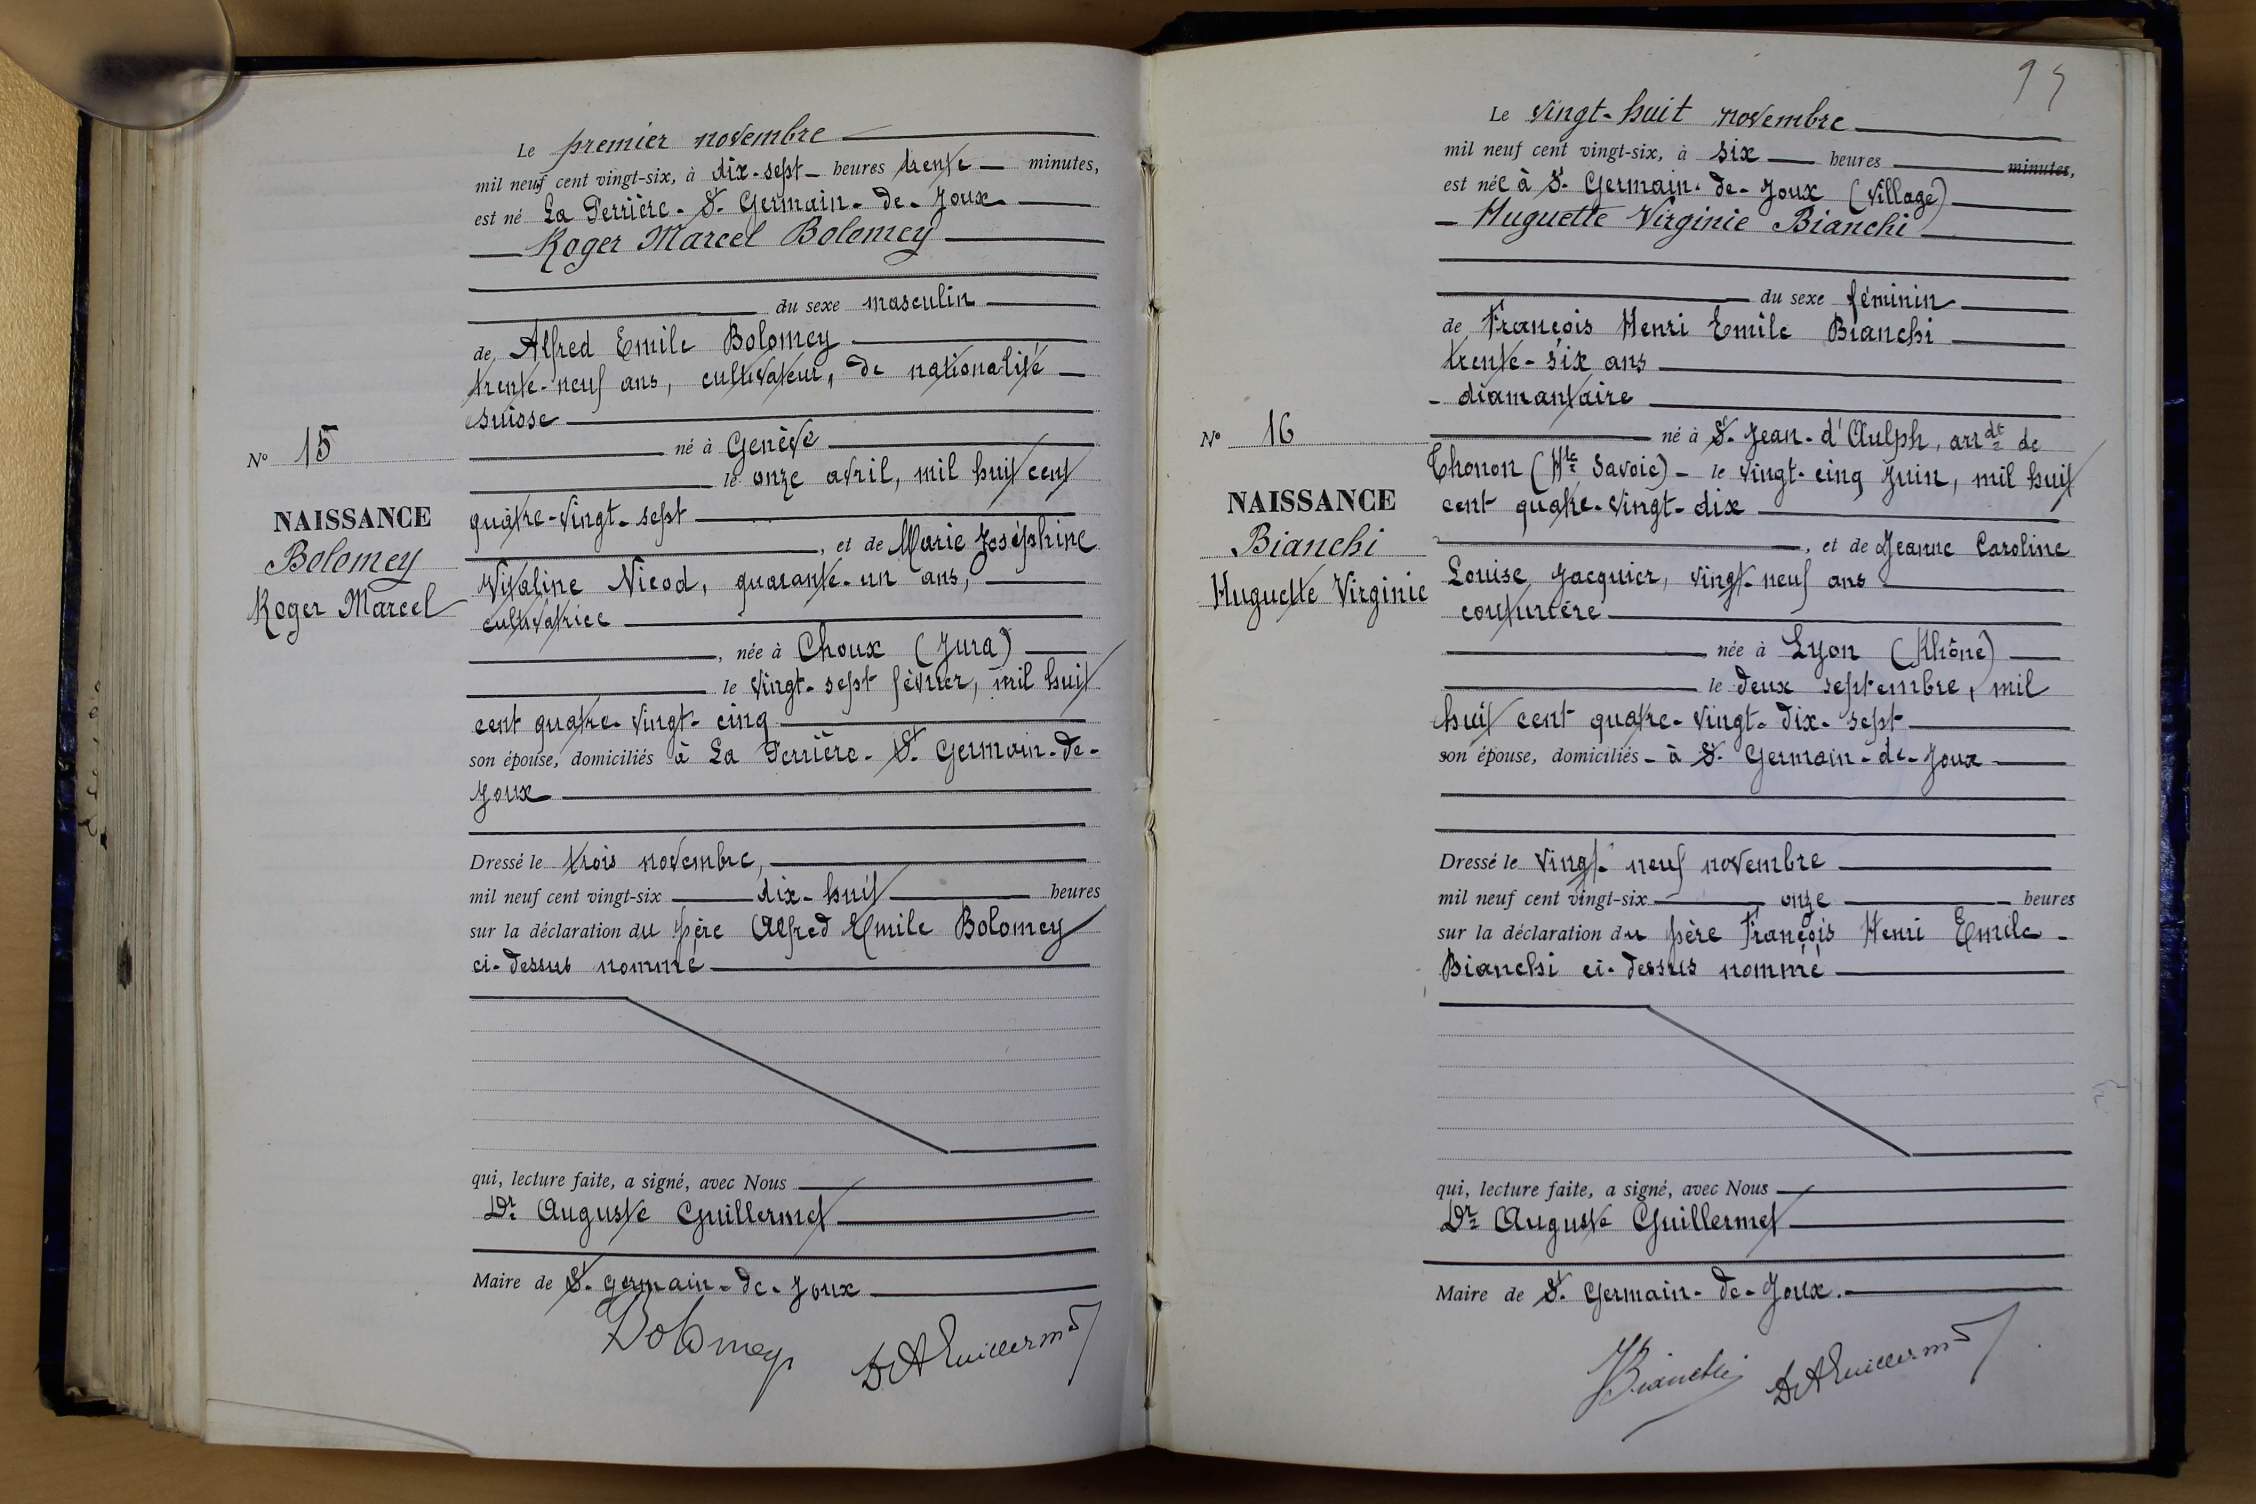 Le premier novembre
mil neuf cent vingt-six, à dix-sept heures trente minutes,
est né La Perrière. St. Germain-de-Joux
Roger Marcel Bolomey
du sexe masculin
de Alfred Emile Bolomey
trente-neuf ans, cultivateur, de nationalité
suisse
né à Genève
le onze avril, mil huit cent
quatre-vingt-sept
, et de Marie Joséphine
Vitaline Nicod, quarante-un ans,
cultivatrice
, née à Choux (Jura)
le vingt-sept février, mil huit
cent quatre-vingt-cinq
son épouse, domiciliés à La Perrière-St. Germain-de-
Joux
Dressé le trois novembre,
mil neuf cent vingt-six dix-huit heures
sur la déclaration du père Alfred Emile Bolomey
ci-dessus nommé
qui, lecture faite, a signé, avec Nous
Dr. Auguste Guillermet
Maire de St. Germain-de-Joux
Bolomey DrAGuillermet
No 15
NAISSANCE
Bolomey
Roger Marcel
95
Le vingt-huit novembre
mil neuf cent vingt-six, à six heures minutes,
est née à St. Germain-de-Joux (village)
Huguette Virginie Bianchi
du sexe féminin
de François Henri Emile Bianchi
trente-six ans
diamantaire
né à St. Jean-d'Aulph, arrdt de
Thonon (Hte Savoie) le vingt-cinq Juin, mil huit
cent quatre-vingt-dix
, et de Jeanne Caroline
Louise Jacquier, vingt-neuf ans
couturière
née à Lyon (Rhône)
le deux septembre, mil
huit cent quatre-vingt-dix-sept
son épouse, domiciliés à St. Germain-de-Joux
Dressé le vingt-neuf novembre
mil neuf cent vingt-six onze heures
sur la déclaration du père François Henri Emile
Bianchi ci-dessus nommé
qui, lecture faite, a signé, avec Nous
Dr Auguste Guillermet
Maire de St. Germain-de-Joux.
Bianchi DrAGuillermet
No 16
NAISSANCE
Bianchi
Huguette Virginie